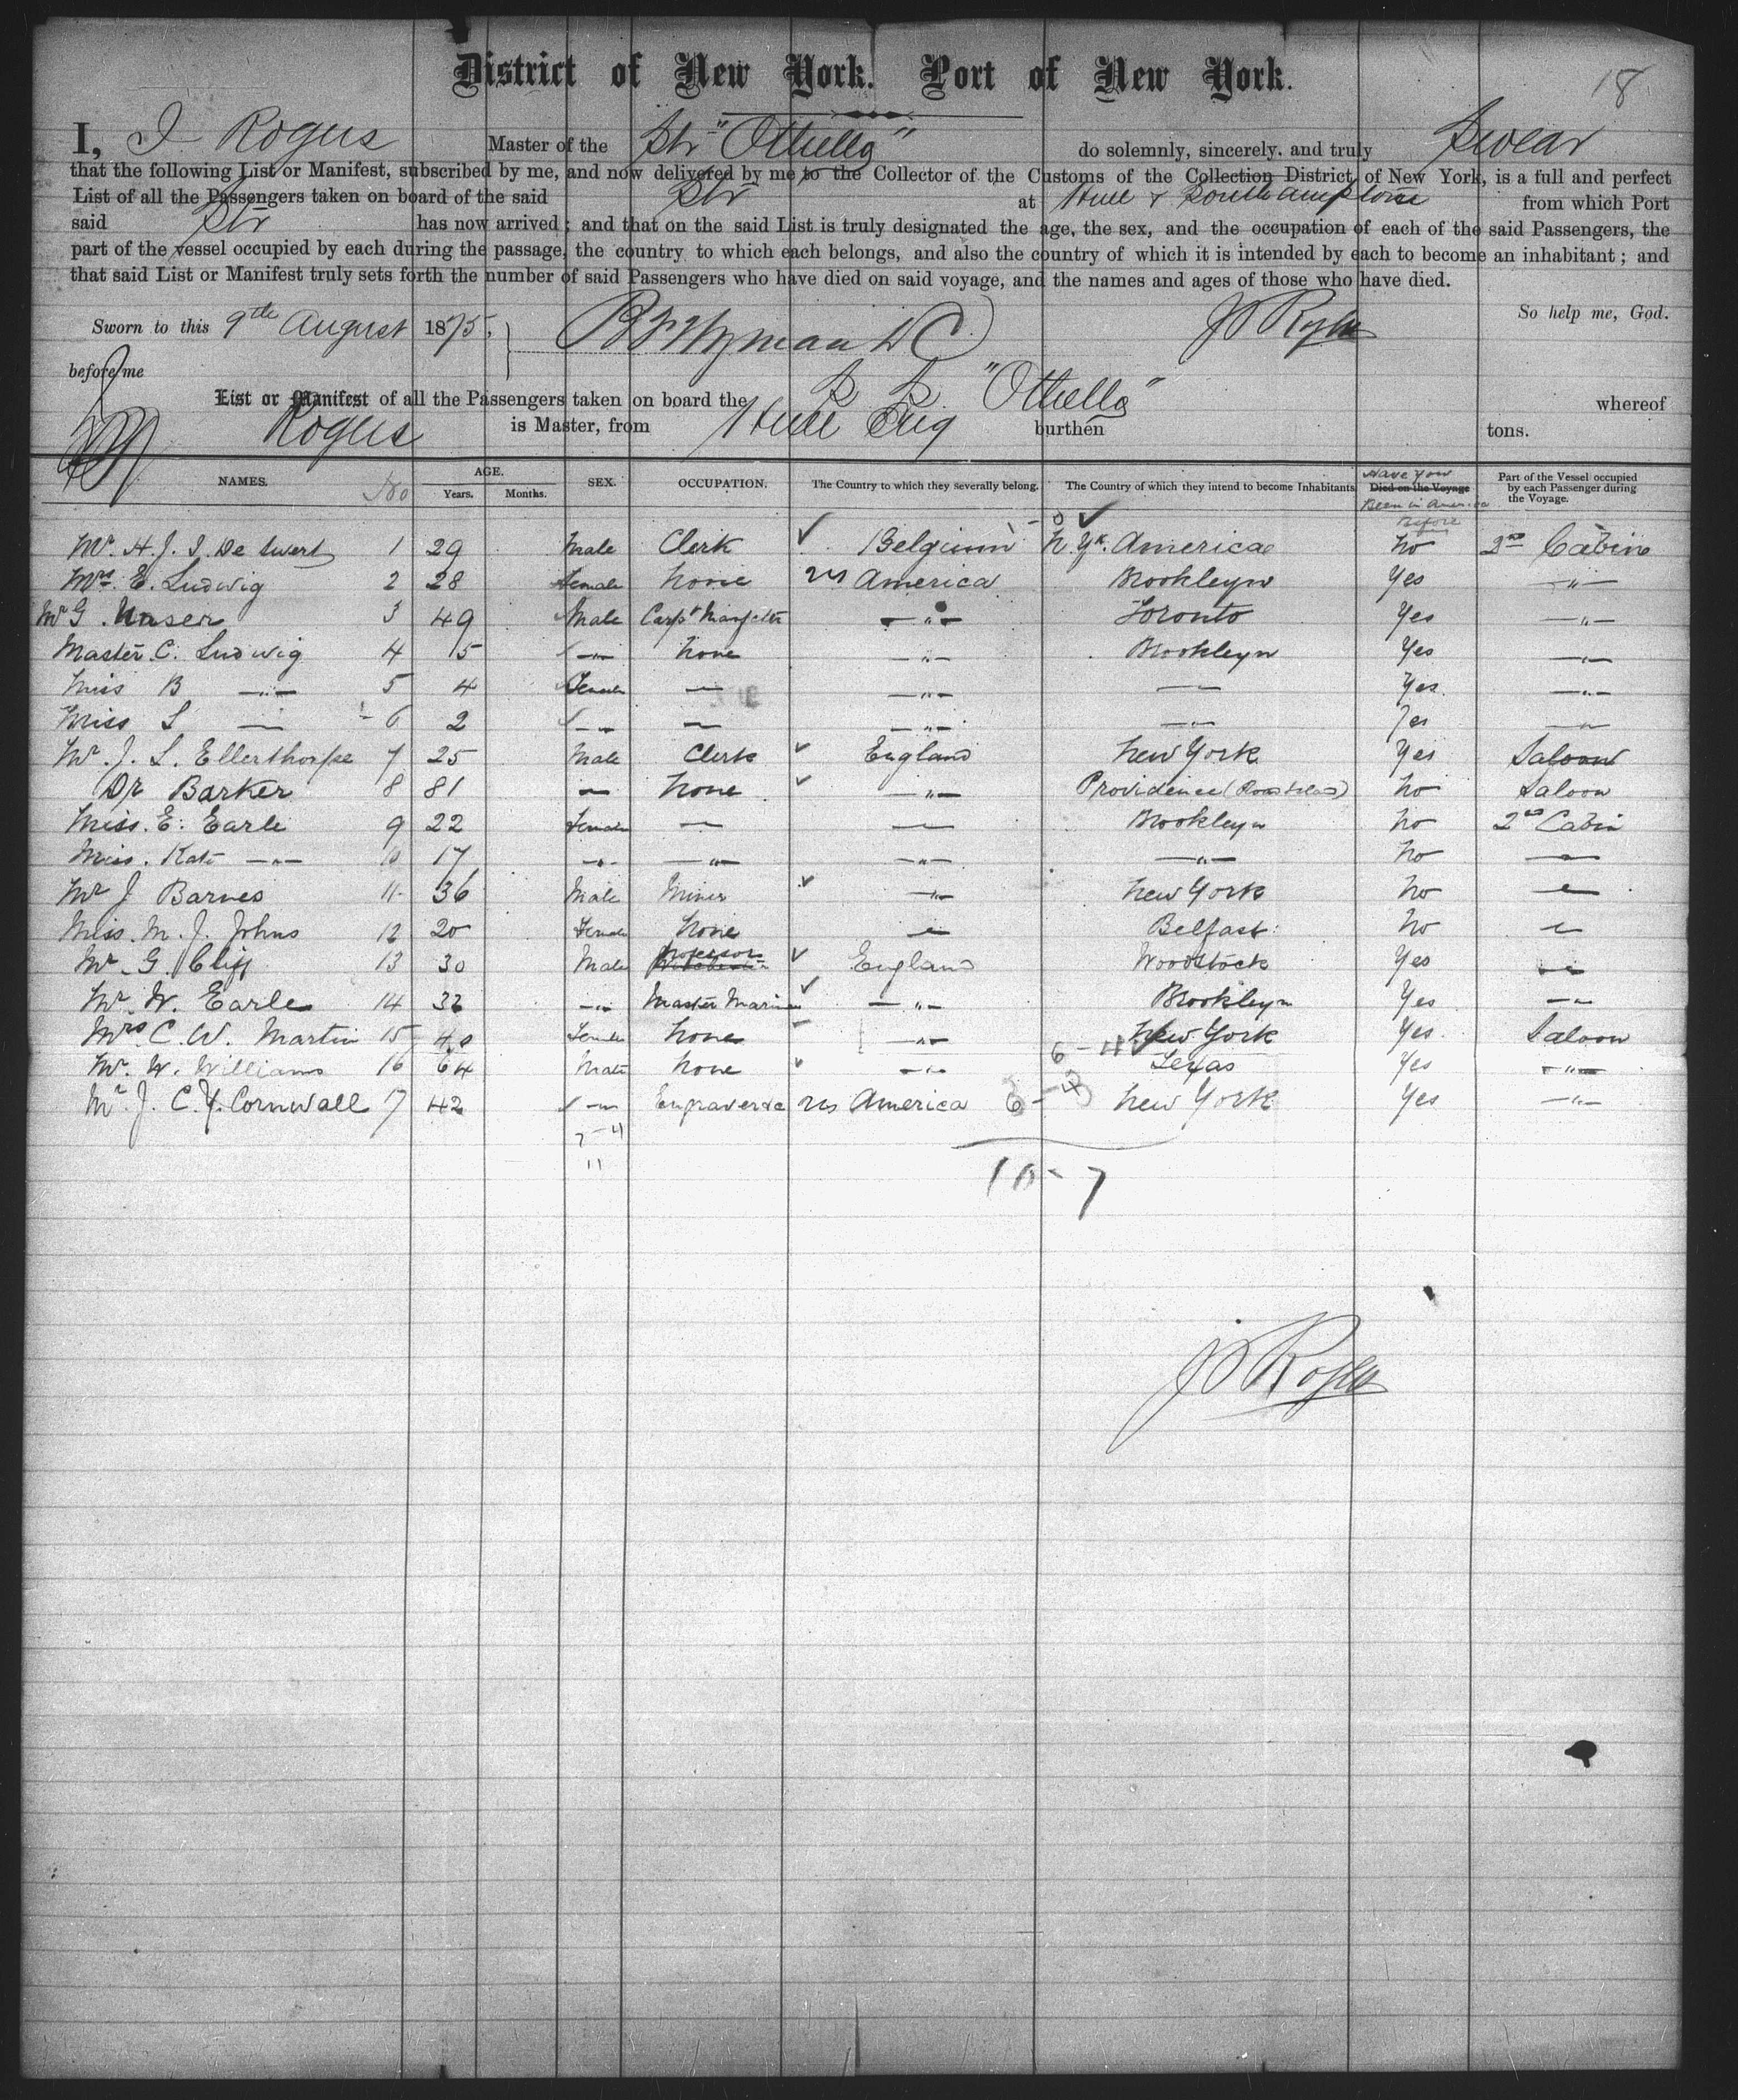 18
District of New York. Port of New York.
I, J Rogers Master of the Str "Othello" do solemnly, sincerely, and truly Swear
that the following List or Manifest, subscribed by me, and now delivered by me to the Collector of the Customs of the Collection District of New York, is a full and perfect
List of all the Passengers taken on board of the said Str at Hull & Southampton from which Port
said Str has now arrived; and that on the said List is truly designated the age, the sex, and the occupation of each of the said Passengers, the
part of the vessel occupied by each during the passage, the country to which each belongs, and also the country of which it is intended by each to become an inhabitant; and
that said List or Manifest truly sets forth the number of said Passengers who have died on said voyage, and the names and ages of those who have died.
So help me, God.
Sworn to this 9th August 1875,
before me
List or Manifest of all the Passengers taken on board the S S "Othello" whereof
Rogers is Master, from Hull Eng burthen tons.
NAMES. No AGE. Years. Months. SEX. OCCUPATION. The Country to which they severally belong. The Country of which they intend to become Inhabitants Died on the Voyage Have you Been in America Before Part of the Vessel occupied by each Passenger during the Voyage.
Mr. H. J. I. De Swert 1 29 Male Clerk Belgium N. Yk. America No 2nd Cabin
Mrs E. Ludwig 2 28 Female None US America Brookleyn Yes -"-
Mr G. Unser 3 49 Male -"- Toronto Yes -"-
Master C. Ludwig 4 5 -"- None -"- Brookleyn Yes -"-
Miss B -"- 5 4 Female — -"- — Yes -"-
Miss L — 6 2 -"- — -"- -"- Yes -"-
Mr. J. L. Ellerthorpe 7 25 Male Clerk England New York Yes Saloon
Dr Barker 8 81 — None -"- Providence (Rhode Island) No Saloon
Miss. E. Earle 9 22 Female — — Brookleyn No 2nd Cabin
Miss. Kate -"- 10 17 -"- -"- -"- -"- No —
Mr J Barnes 11 36 Male Miner -"- New York No —
Miss. M. J. Johns 12 20 Female None — Belfast No —
Mr. G. Cliff 13 30 Male Professor England Woodstock Yes —
Mr. W. Earle 14 32 -"- Master Marine -"- Brookleyn Yes -"-
Mrs C. W. Martin 15 40 Female None -"- New York Yes. Saloon
Mr. W. Williams 16 64 Male None -"- Texas Yes -"-
Mr. J. C. Y. Cornwall 17 42 -"- Engraver &c US America New York Yes -"-
7-4
11
10-7
J Rogers